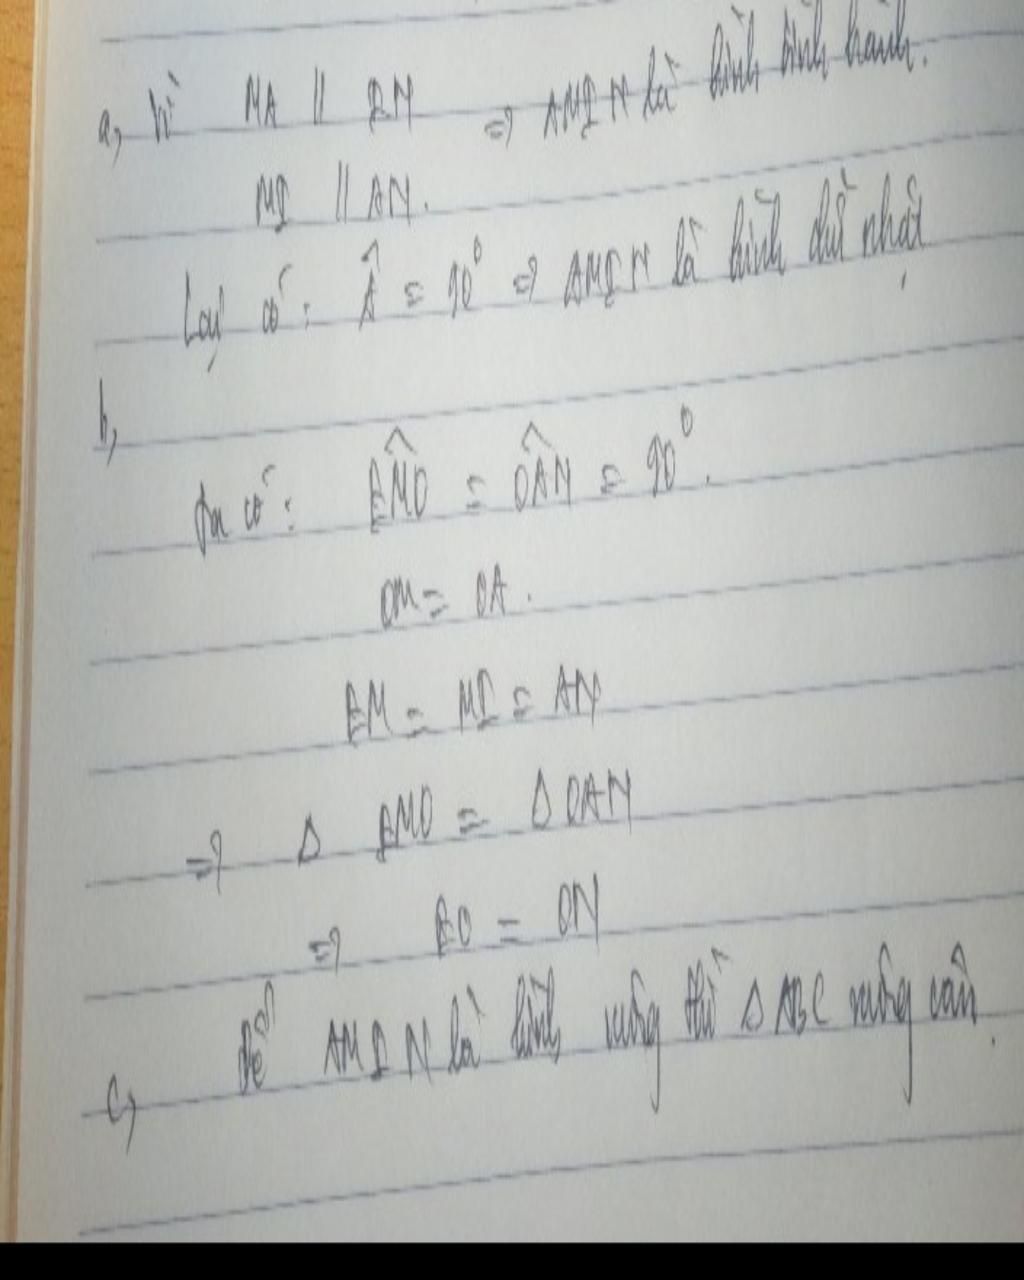 a, Vì MA // IN => AMIN là hình bình hành.
MI // AN.
Lại có: Â = 90° => AMIN là hình chữ nhật
b,
Ta có: EMO^ = OAN^ = 90°.
OM = OA.
EM = MI = AN
=> Δ EMO = Δ OAN
=> EO = ON
c, Để AMIN là hình vuông thì Δ ABC vuông cân.